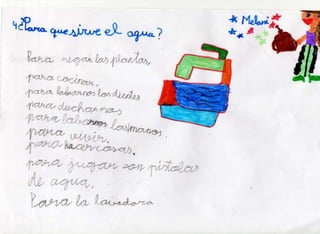 4¿Para que sirve el agua?
Melani
Para regar las plantas,
para cocinar,
para labrarnos los dientes
para ducharnos
para labarnos las manos.
para vivir.
para hacer cosas.
para jugar con pistolas
de agua.
Para la lavadora